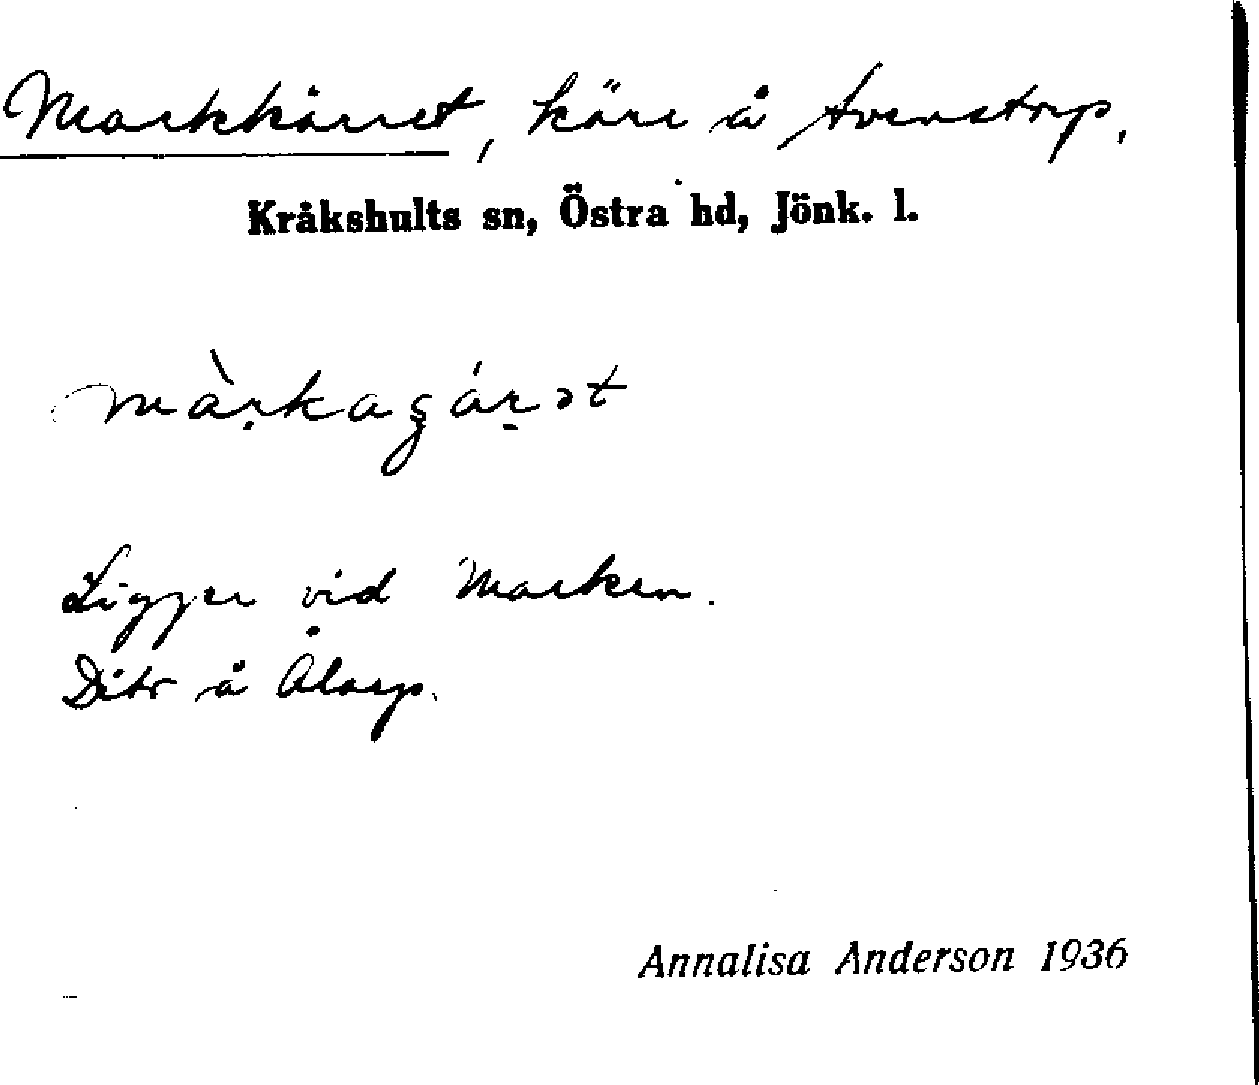 Markkärret, kärr å Avenstorp,
Kråkshults sn, Östra hd, Jönk. l.
Ligger vid Marken.
Dito å Ålarp.
Annalisa Anderson 1936